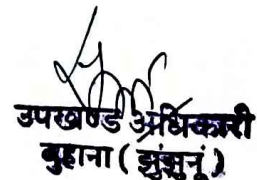 उपखण्ड अधिकारी
बुहाना (झुंझुनूं)